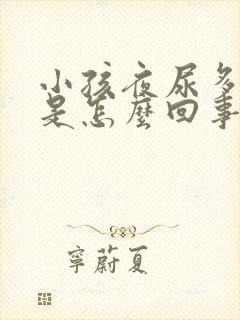 小孩夜尿多
是怎麼回事
寧蔚夏